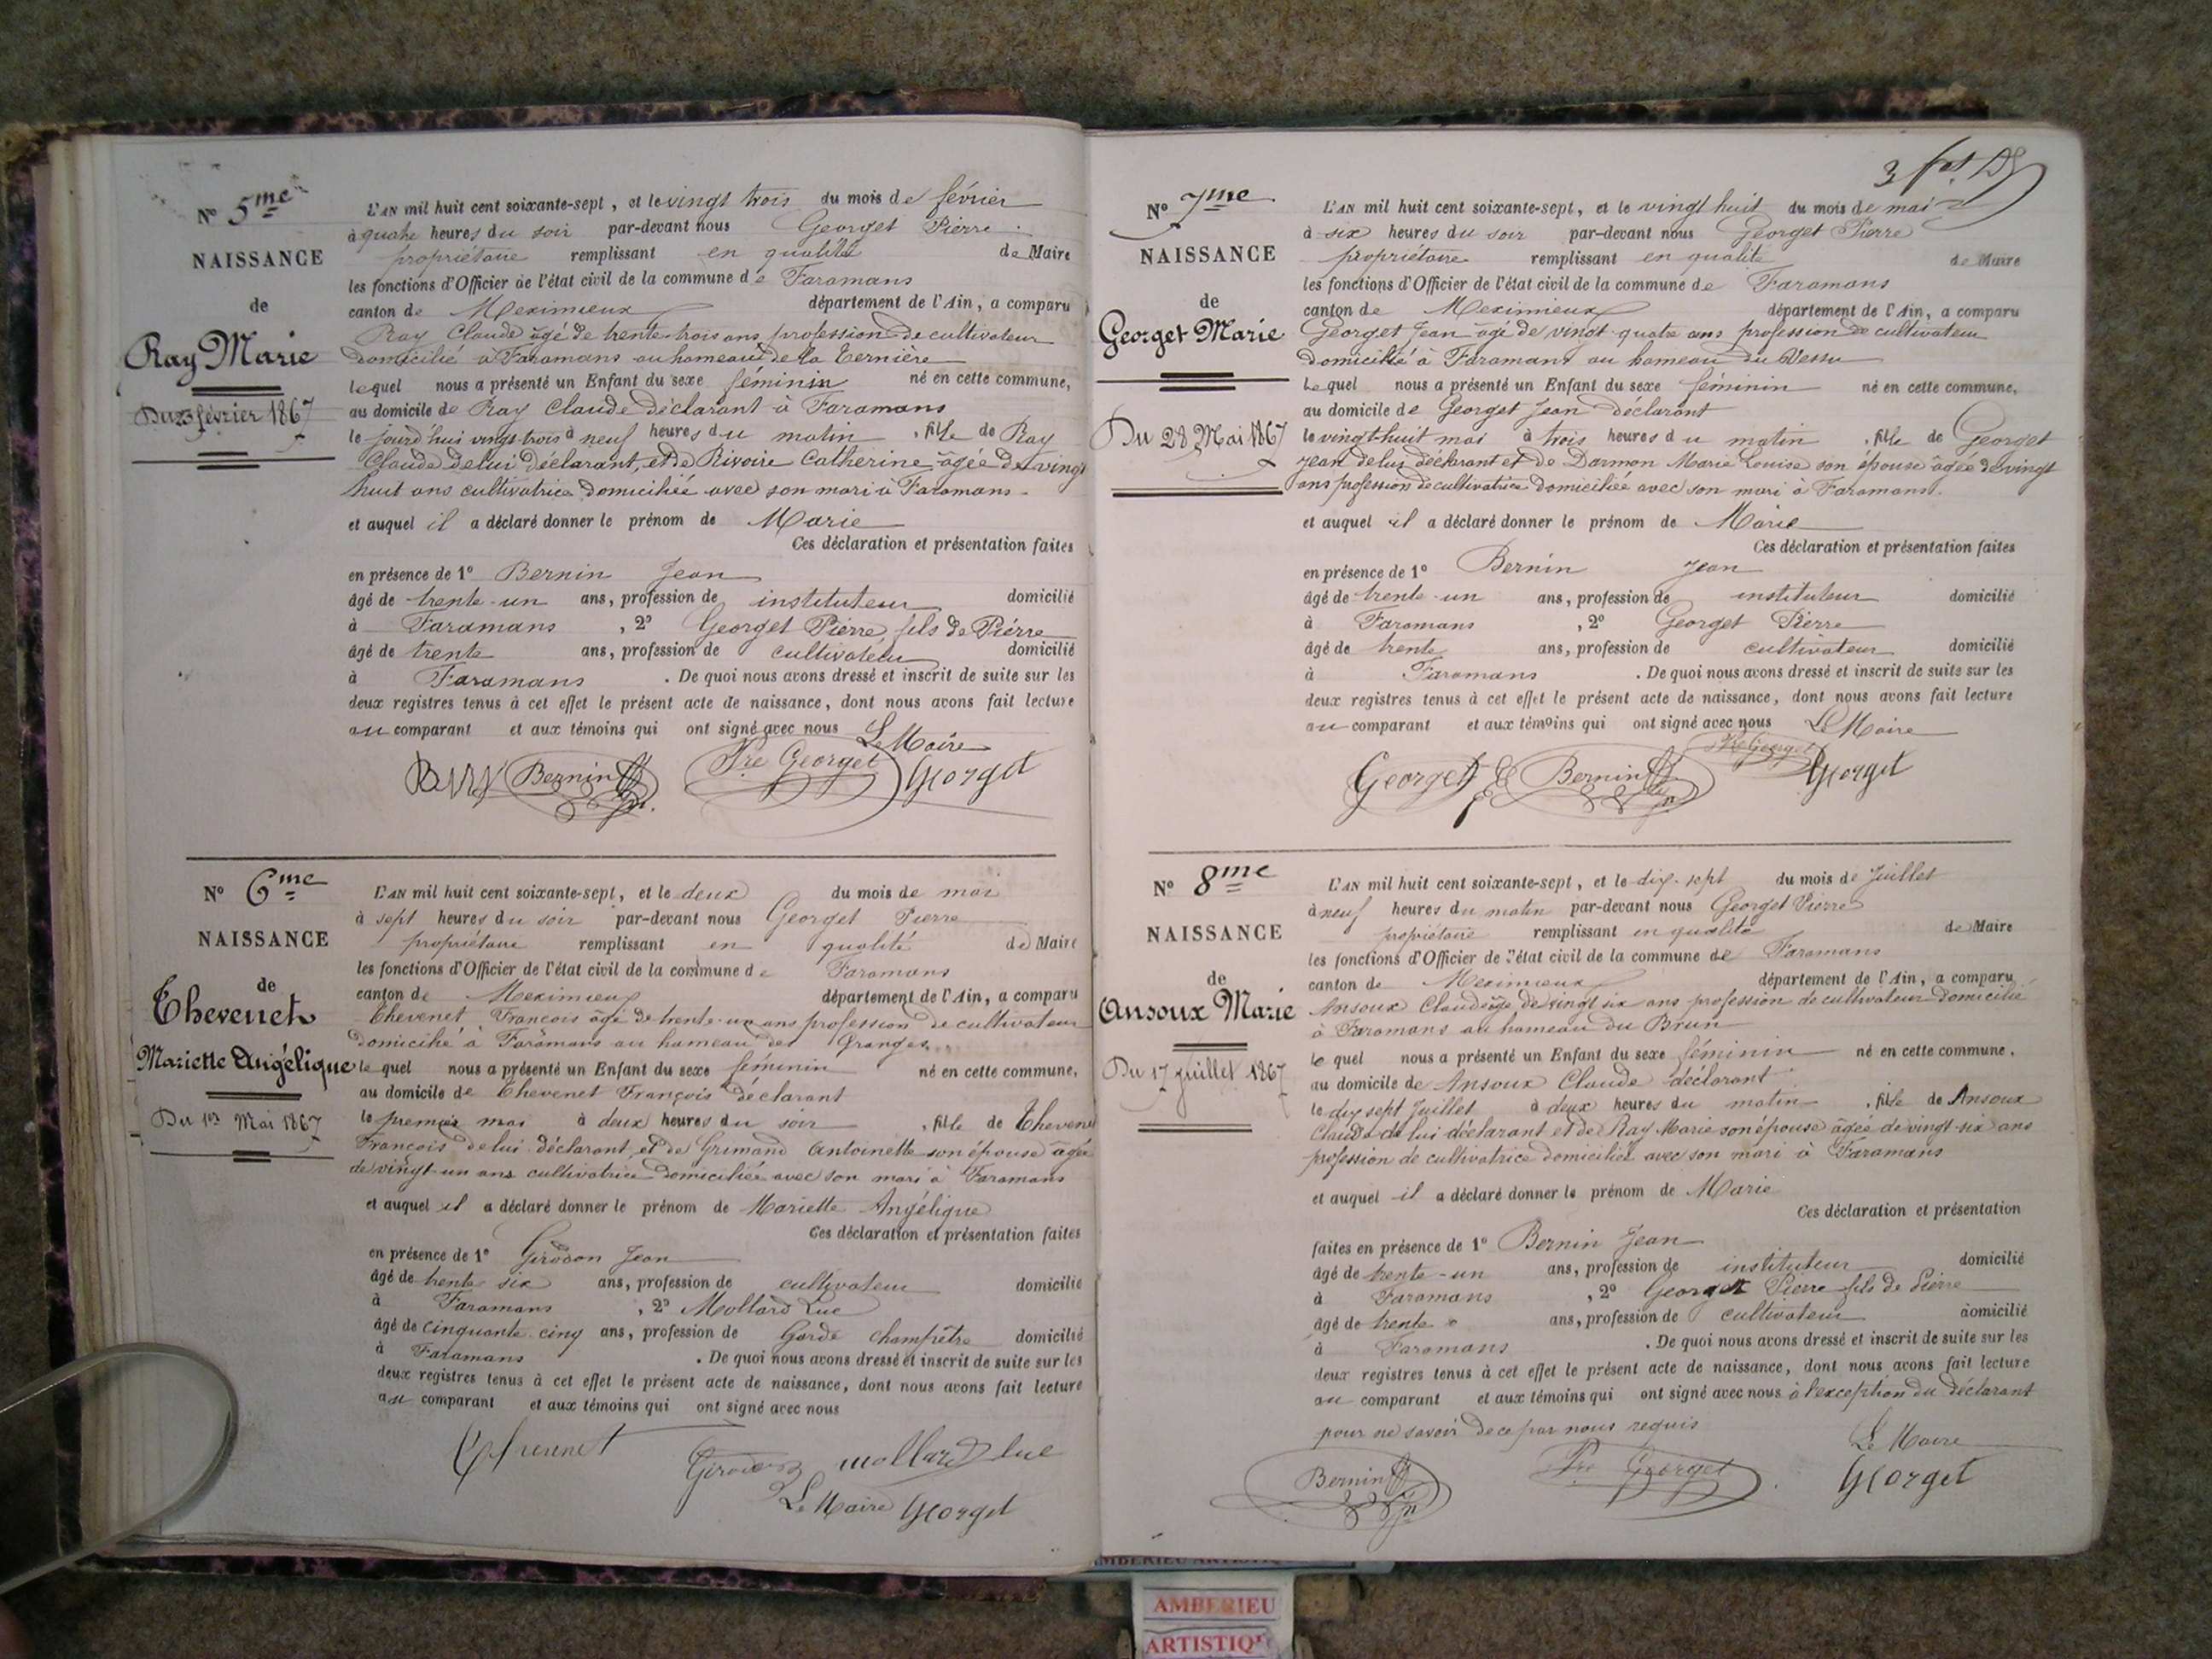 N° 5me
NAISSANCE
de
Ray Marie
Du 23 février 1867
L'AN mil huit cent soixante-sept, et le vingt trois du mois de février
à quatre heures du soir par-devant nous Georget Pierre
propriétaire remplissant en qualité de Maire
les fonctions d'Officier de l'état civil de la commune de Faramans
canton de Meximieux département de l'Ain, a comparu
Ray Claude âgé de trente-trois ans, profession de cultivateur
domicilié à Faramans au hameau de la Ternière
lequel nous a présenté un Enfant du sexe féminin né en cette commune,
au domicile de Ray Claude déclarant à Faramans
le jourd'hui vingt-trois à neuf heures du matin, fille de Ray
Claude de lui déclarant, et de Rivoire Catherine, âgée de vingt
huit ans cultivatrice domiciliée avec son mari à Faramans.
et auquel il a déclaré donner le prénom de Marie
Ces déclaration et présentation faites
en présence de 1° Bernin Jean
âgé de trente-un ans, profession de instituteur domicilié
à Faramans, 2° Georget Pierre, fils de Pierre
âgé de trente ans, profession de cultivateur domicilié
à Faramans. De quoi nous avons dressé et inscrit de suite sur les
deux registres tenus à cet effet le présent acte de naissance, dont nous avons fait lecture
au comparant et aux témoins qui ont signé avec nous Le Maire
Bernin Pre Georget Georget
N° 6me
NAISSANCE
de
Thevenet
Mariette Angélique
Du 1er Mai 1867
L'AN mil huit cent soixante-sept, et le deux du mois de mai
à sept heures du soir par-devant nous Georget Pierre
propriétaire remplissant en qualité de Maire
les fonctions d'Officier de l'état civil de la commune de Faramans
canton de Meximieux département de l'Ain, a comparu
Thevenet François âgé de trente-un ans profession de cultivateur
domicilié à Faramans au hameau des Granges
lequel nous a présenté un Enfant du sexe féminin né en cette commune,
au domicile de Thevenet François déclarant
le premier mai à deux heures du soir, fille de Thevenet
François de lui déclarant, et de Grimand Antoinette son épouse âgée
de vingt-un ans cultivatrice domiciliée avec son mari à Faramans
et auquel il a déclaré donner le prénom de Mariette Angélique
Ces déclaration et présentation faites
en présence de 1° Girodon Jean
âgé de trente six ans, profession de cultivateur domicilié
à Faramans, 2° Mollard Luc
âgé de cinquante-cinq ans, profession de Garde champêtre domicilié
à Faramans. De quoi nous avons dressé et inscrit de suite sur les
deux registres tenus à cet effet le présent acte de naissance, dont nous avons fait lecture
au comparant et aux témoins qui ont signé avec nous
Thevenet Girodon mollard luc
Le Maire Georget
N° 7me
NAISSANCE
de
Georget Marie
Du 28 Mai 1867
L'AN mil huit cent soixante-sept, et le vingt huit du mois de mai
à six heures du soir par-devant nous Georget Pierre
propriétaire remplissant en qualité de Maire
les fonctions d'Officier de l'état civil de la commune de Faramans
canton de Meximieux département de l'Ain, a comparu
Georget Jean âgé de vingt-quatre ans profession de cultivateur
domicilié à Faramans au hameau du Vessu
Lequel nous a présenté un Enfant du sexe féminin né en cette commune,
au domicile de Georget Jean déclarant
le vingt-huit mai à trois heures du matin, fille de Georget
Jean de lui déclarant et de Darmon Marie Louise son épouse âgée de vingt
ans profession de cultivatrice domiciliée avec son mari à Faramans.
et auquel il a déclaré donner le prénom de Marie
Ces déclaration et présentation faites
en présence de 1° Bernin Jean
âgé de trente-un ans, profession de instituteur domicilié
à Faramans, 2° Georget Pierre
âgé de trente ans, profession de cultivateur domicilié
à Faramans. De quoi nous avons dressé et inscrit de suite sur les
deux registres tenus à cet effet le présent acte de naissance, dont nous avons fait lecture
au comparant et aux témoins qui ont signé avec nous Le Maire
Georget Bernin Pre Georget Georget
N° 8me
NAISSANCE
de
Ansoux Marie
Du 17 juillet 1867
L'AN mil huit cent soixante-sept, et le dix-sept du mois de Juillet
à neuf heures du matin par-devant nous Georget Pierre
propriétaire remplissant en qualité de Maire
les fonctions d'Officier de l'état civil de la commune de Faramans
canton de Meximieux département de l'Ain, a comparu
Ansoux Claude âgé de vingt six ans profession de cultivateur domicilié
à Faramans au hameau du Brun
lequel nous a présenté un Enfant du sexe féminin né en cette commune,
au domicile de Ansoux Claude déclarant
le dix sept Juillet à deux heures du matin, fille de Ansoux
Claude de lui déclarant et de Ray Marie son épouse âgée de vingt-six ans
profession de cultivatrice domiciliée avec son mari à Faramans
et auquel il a déclaré donner le prénom de Marie
Ces déclaration et présentation
faites en présence de 1° Bernin Jean
âgé de trente-un ans, profession de instituteur domicilié
à Faramans, 2° Georget Pierre fils de Pierre
âgé de trente ans, profession de cultivateur domicilié
à Faramans. De quoi nous avons dressé et inscrit de suite sur les
deux registres tenus à cet effet le présent acte de naissance, dont nous avons fait lecture
au comparant et aux témoins qui ont signé avec nous à l'exception du déclarant
pour ne savoir de ce par nous requis
Le Maire
Bernin Pre Georget Georget
AMBERIEU
ARTISTIQU